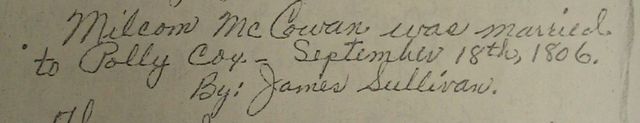 Milcom McCowan was married
to Polly Cox - September 18th, 1806.
By: James Sullivan.